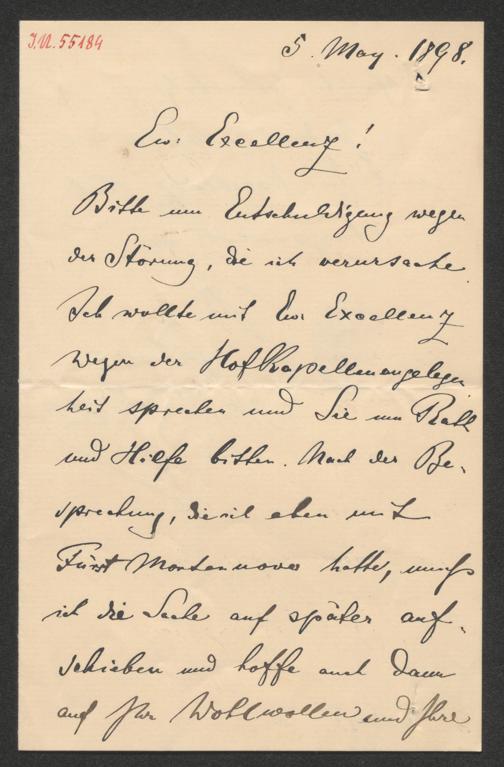 I.N. 55184
5. May. 1898.
Ew. Excellenz!
Bitte um Entschuldigung wegen
der Störung, die ich verursache.
Ich wollte mit Ew. Excellenz
wegen der Hofkapellenangelegen
heit sprechen und Sie um Rath
und Hilfe bitten. Nach der Be-
sprechung, die ich eben mit
Fürst Montenuovo hatte, muss
ich die Sache auf später auf-
schieben und hoffe auch dann
auf Ihr Wohlwollen und Ihre